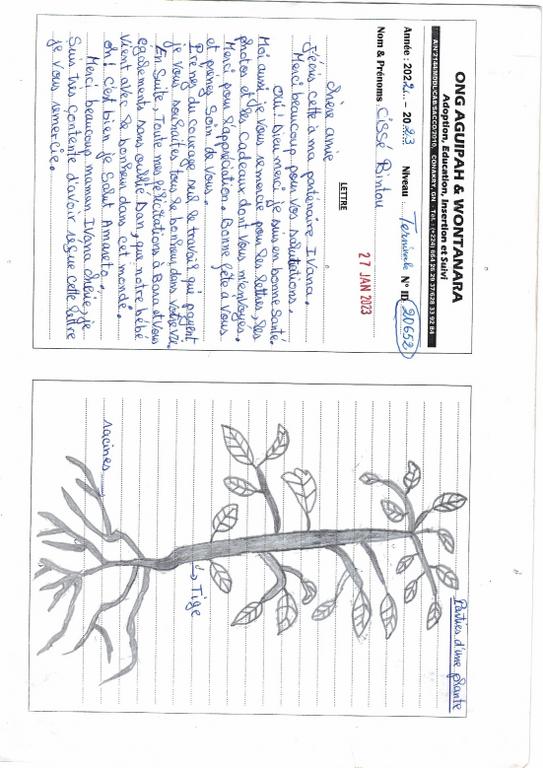 ONG AGUIPAH & WONTANARA
Adoption, Education, Insertion et Suivi
Année : 2022 - 2023 Niveau Terminale N° ID 20652
Nom & Prénoms Cissé Bintou
27 JAN 2023
LETTRE
chère amie
J'écris cette à ma partenaire Ivana.
Merci beaucoup pour vos salutations.
Oui ! Dieu merci je suis en bonne santé.
Moi aussi je vous remercie pour les lettres, les
photos et les cadeaux dont vous m'envoyez.
Merci pour l'appréciation. Bonne fête à vous
et prenez soin de vous.
Prenez du courage seul le travail qui payent
je vous souhaites tous le bonheur dans votre vie
En Suite, Toute mes félicitations à Bara et vous
également sans oublié Dan, que notre bébé
vient avec le bonheur dans cet monde.
oh ! c'est bien je Salut Amareto.
Merci beaucoup maman Ivana chérie, je
Suis très contente d'avoir réçue cette lettre
je vous remercie.
Parties d'une plante
Tige
racines